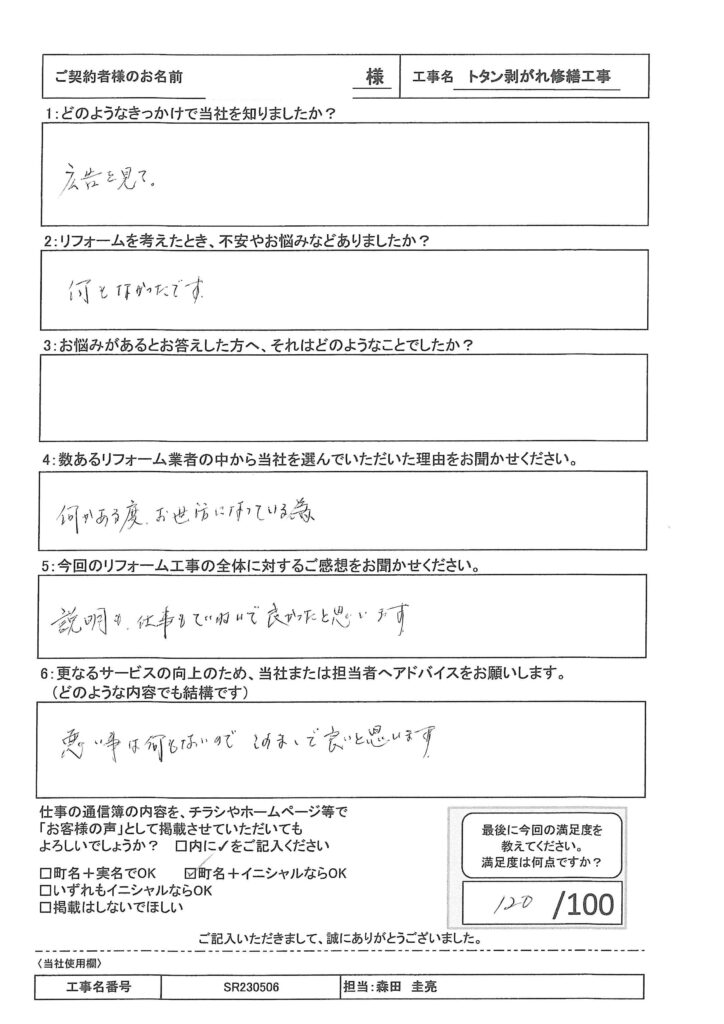 ご契約者様のお名前 様 工事名 トタン剥がれ修繕工事
1:どのようなきっかけで当社を知りましたか?
広告を見て。
2:リフォームを考えたとき、不安やお悩みなどありましたか?
何もなかったです。
3:お悩みがあるとお答えした方へ、それはどのようなことでしたか?
4:数あるリフォーム業者の中から当社を選んでいただいた理由をお聞かせください。
何かある度、お世話になっている為
5:今回のリフォーム工事の全体に対するご感想をお聞かせください。
説明も、仕事もていねいで良かったと思います
6:更なるサービスの向上のため、当社または担当者へアドバイスをお願いします。
(どのような内容でも結構です)
悪い事は何もないので このままで良いと思います
仕事の通信簿の内容を、チラシやホームページ等で
「お客様の声」として掲載させていただいても
よろしいでしょうか? □内に✓をご記入ください
□町名+実名でOK ☑町名+イニシャルならOK
□いずれもイニシャルならOK
□掲載はしないでほしい
最後に今回の満足度を
教えてください。
満足度は何点ですか?
120 /100
ご記入いただきまして、誠にありがとうございました。
〈当社使用欄〉
工事名番号 SR230506 担当:森田 圭亮